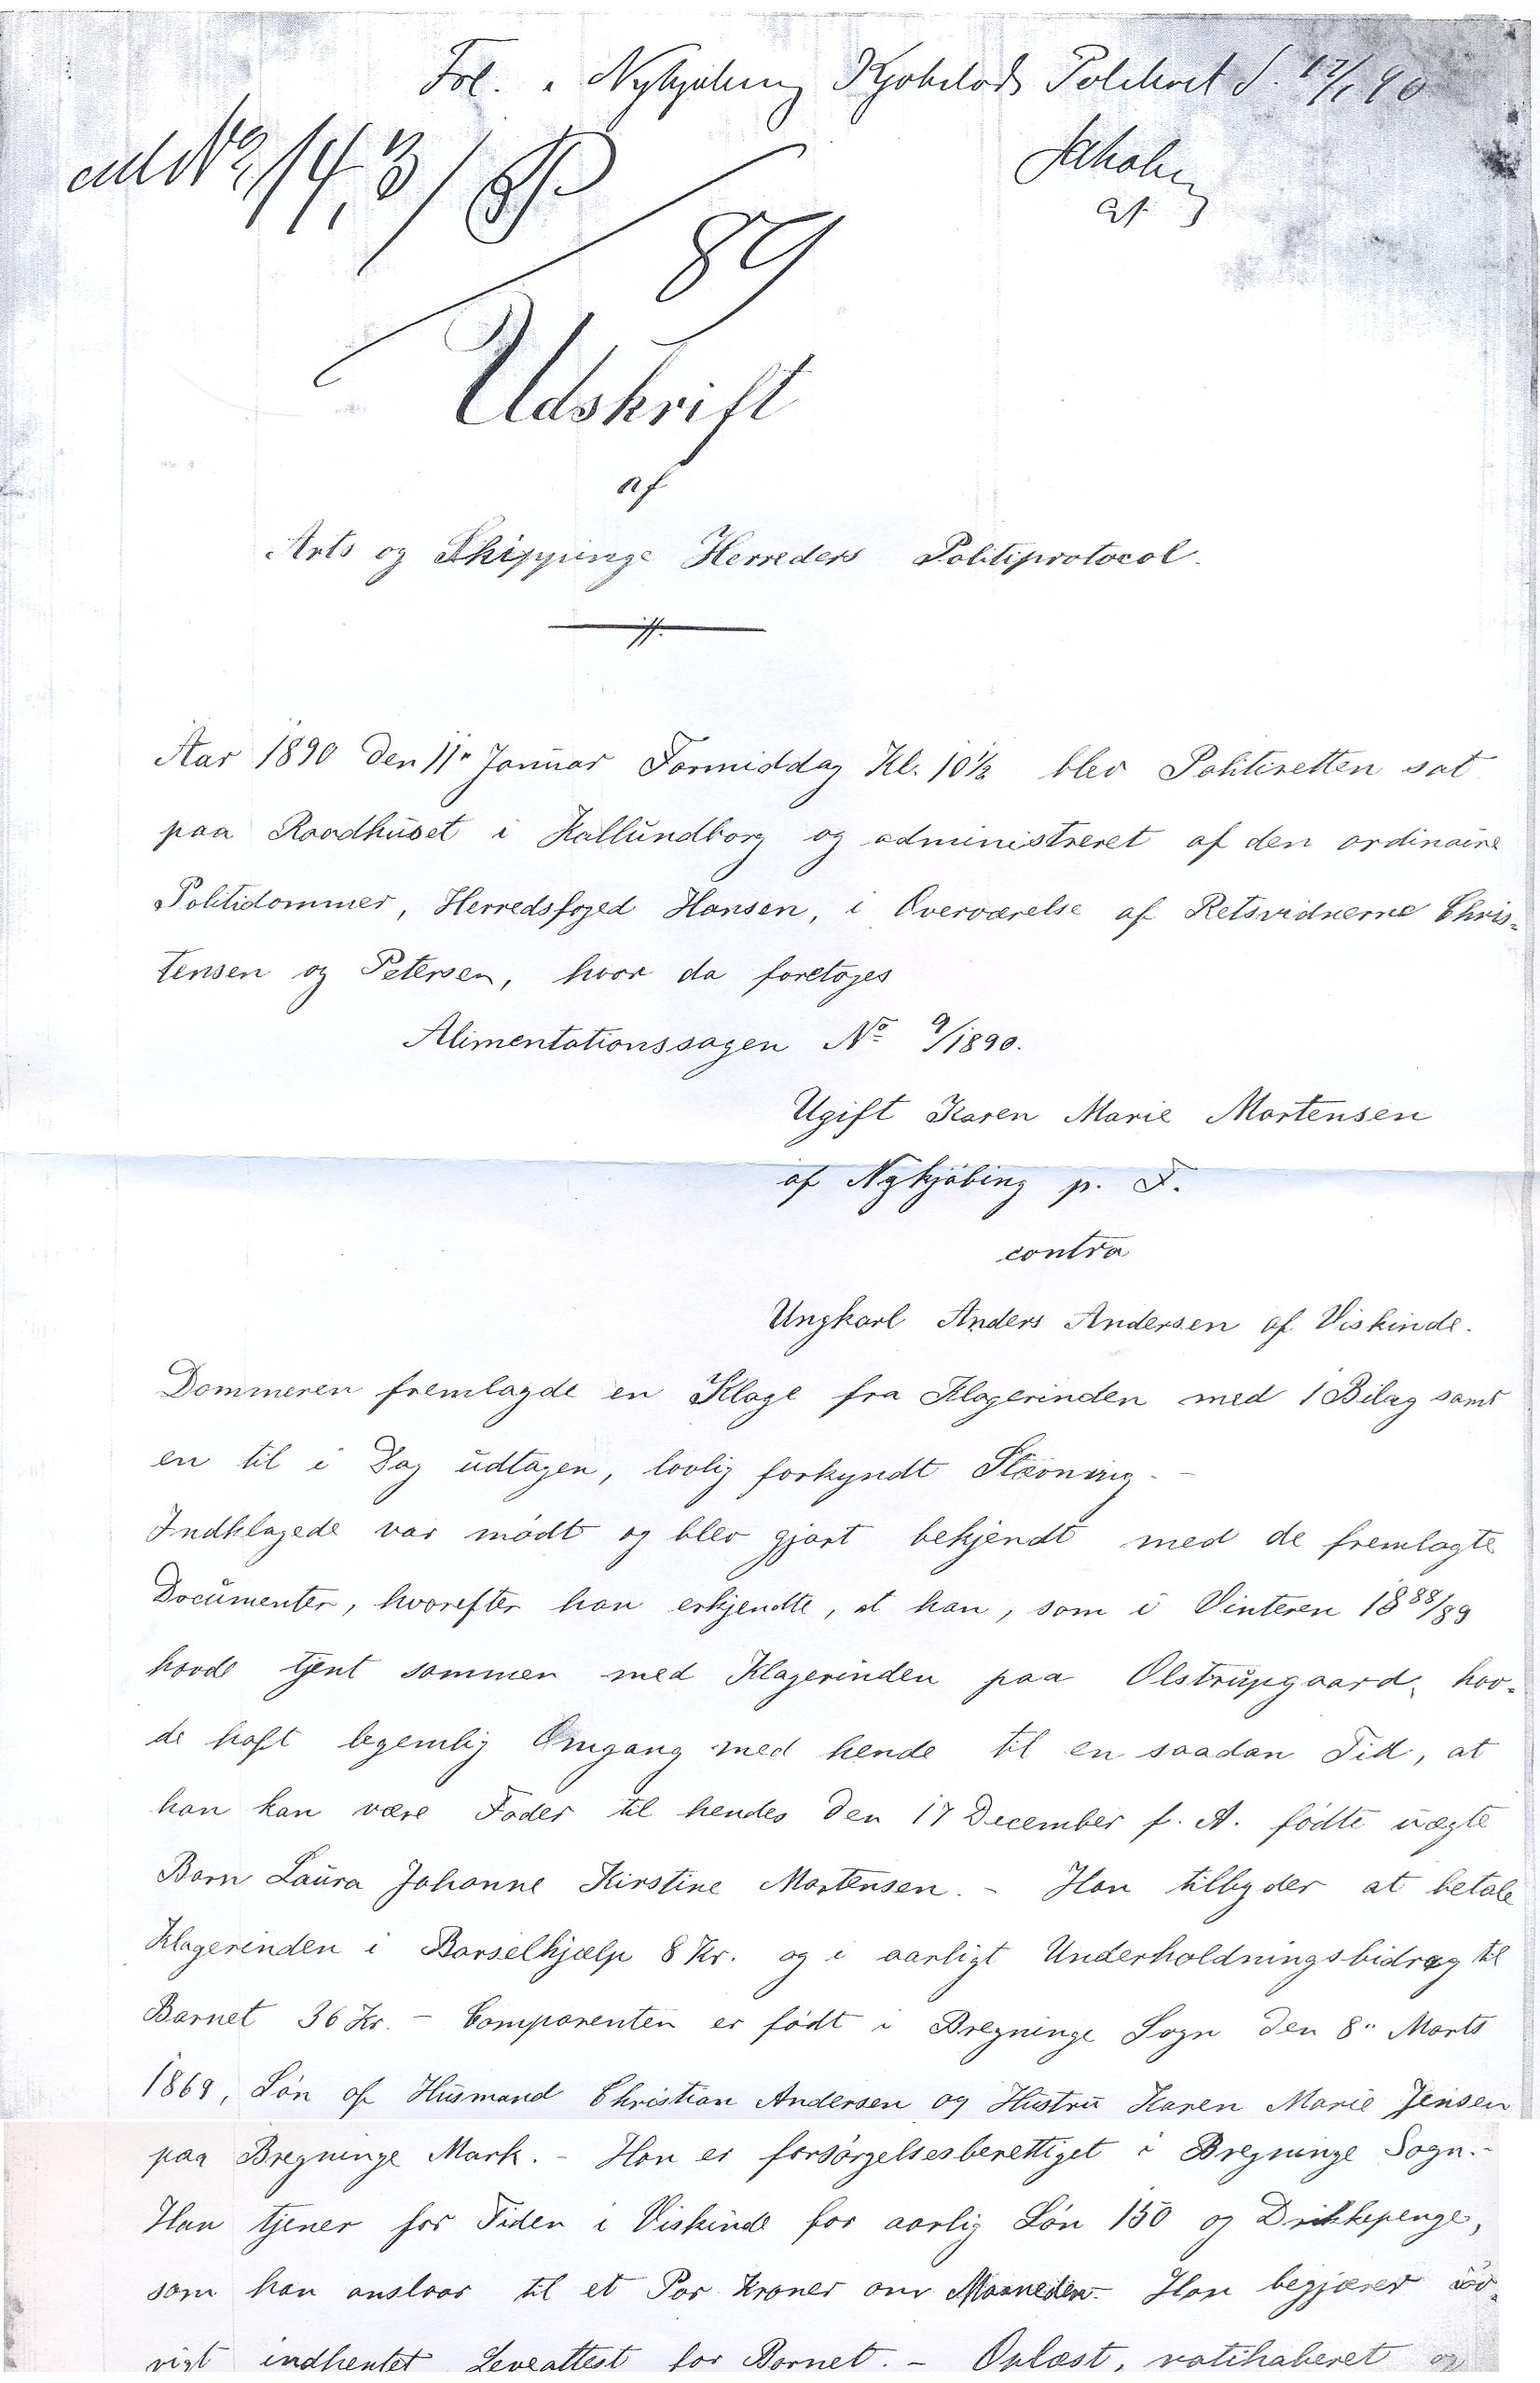 Frl. i Nykjøbing Kjøbstads Politiret d. 17/1 90
ad No 143/P
89
Udskrift
af
Arts og Skippinge Herreders Politiprotocol.
Aar 1890 den 11" Januar Formiddag Kl. 10½ blev Politiretten sat
paa Raadhuset i Kallundborg og administreret af den ordinaire
Politidommer, Herredsfoged Hansen, i Overværelse af Retsvidnerne Chris=
tensen og Petersen, hvor da foretoges
Alimentationssagen No 9/1890.
Ugift Karen Marie Mortensen
af Nykjøbing p. F.
contra
Ungkarl Anders Andersen af Viskinde.
Dommeren fremlagde en Klage fra Klagerinden med 1 Bilag samt
en til i Dag udtagen, lovlig forkyndt Stævning. -
Indklagede var mødt og blev gjort bekjendt med de fremlagte
Documenter, hvorefter han erkjendte, at han, som i Vinteren 1888/89
havde tjent sammen med Klagerinden paa Olstrupgaard, hav=
de haft legemlig Omgang med hende til en saadan Tid, at
han kan være Fader til hendes den 17 December f. A. fødte uægte
Barn Laura Johanne Kirstine Mortensen. - Han tilbyder at betale
Klagerinden i Barselhjælp 8 Kr. og i aarligt Underholdningsbidrag til
Barnet 36 Kr. - Comparenten er født i Bregninge Sogn den 8" Marts
1869, Søn af Husmand Christian Andersen og Hustru Karen Marie Jensen
paa Bregninge Mark. - Han er forsørgelsesberettiget i Bregninge Sogn. -
Han tjener for Tiden i Viskinde for aarlig Løn 150 og Drikkepenge,
som han anslaar til et Par Kroner om Maaneden - Han begjærer iøv=
rigt indhentet Leveattest for Barnet. - Oplæst, ratihaberet og